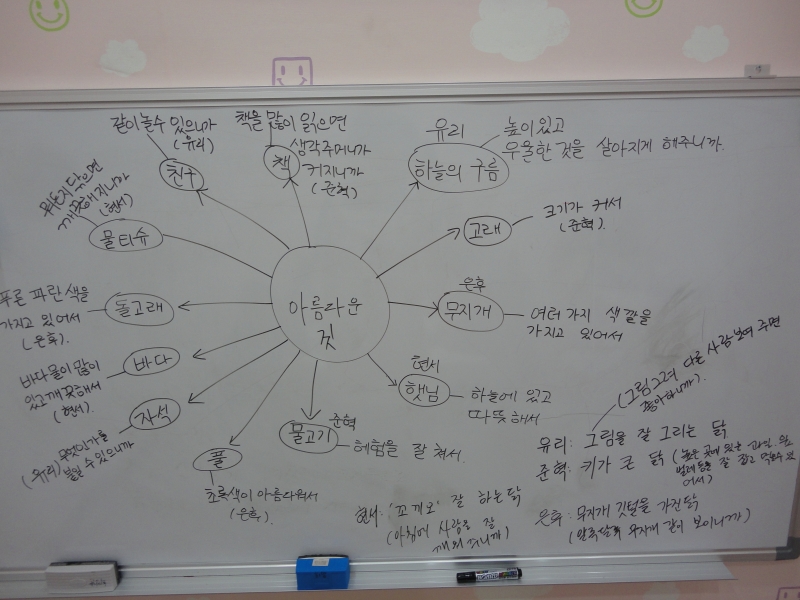 아름다운
것
친구
같이 놀수 있으니까
(유리)
책
책을 많이 읽으면
생각주머니가
커지니까
(준혁)
유리
하늘의 구름
높이 있고
우울한 것을 살아지게 해주니까.
고래
크기가 커서
(준혁).
은후
무지개
여러가지 색깔을
가지고 있어서
현서
햇님
하늘에 있고
따뜻해서
준혁
물고기
헤험을 잘 쳐서.
풀
초록색이 아름다워서
(은후).
자석
(유리) 무엇인가를
붙일 수 있으니까
바다
바다물이 많이
있고 깨끗해서
(현서).
돌고래
푸른 파란색을
가지고 있어서
(은후).
물티슈
뭐든지 닦으면
깨끗해지니까
(현서)
(그림그려 다른 사람 보여주면
좋아하니까).
유리: 그림을 잘 그리는 닭
준혁: 키가 큰 닭 (높은 곳에 있는 과일,
벌레 등을 잘 잡고 먹을수 있
어서)
현서: '꼬끼오' 잘 하는 닭
(아침에 사람을 잘
깨워 주니까)
은후: 무지개 깃털을 가진 닭
(알록달록 무지개 같이 보이니까)